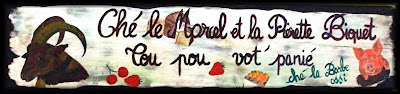 Ché le Marcel et la Pierette Biquet
Tou pou vot' panié
ché la Barbe
ossi